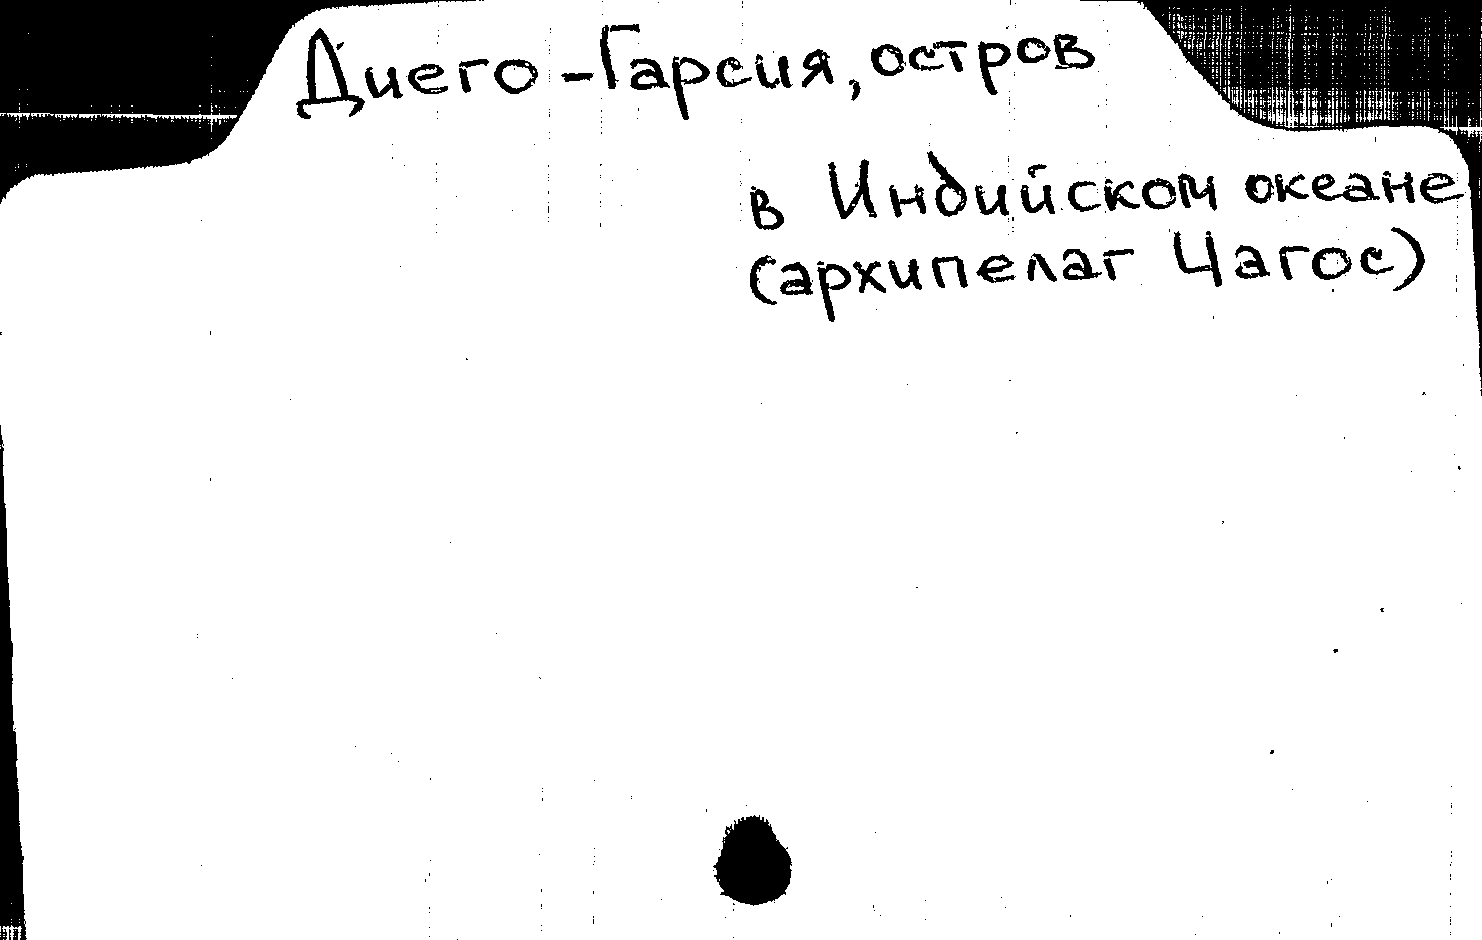 Диего-Гарсия, остров
в Индийском океане
(архипелаг Чагос)